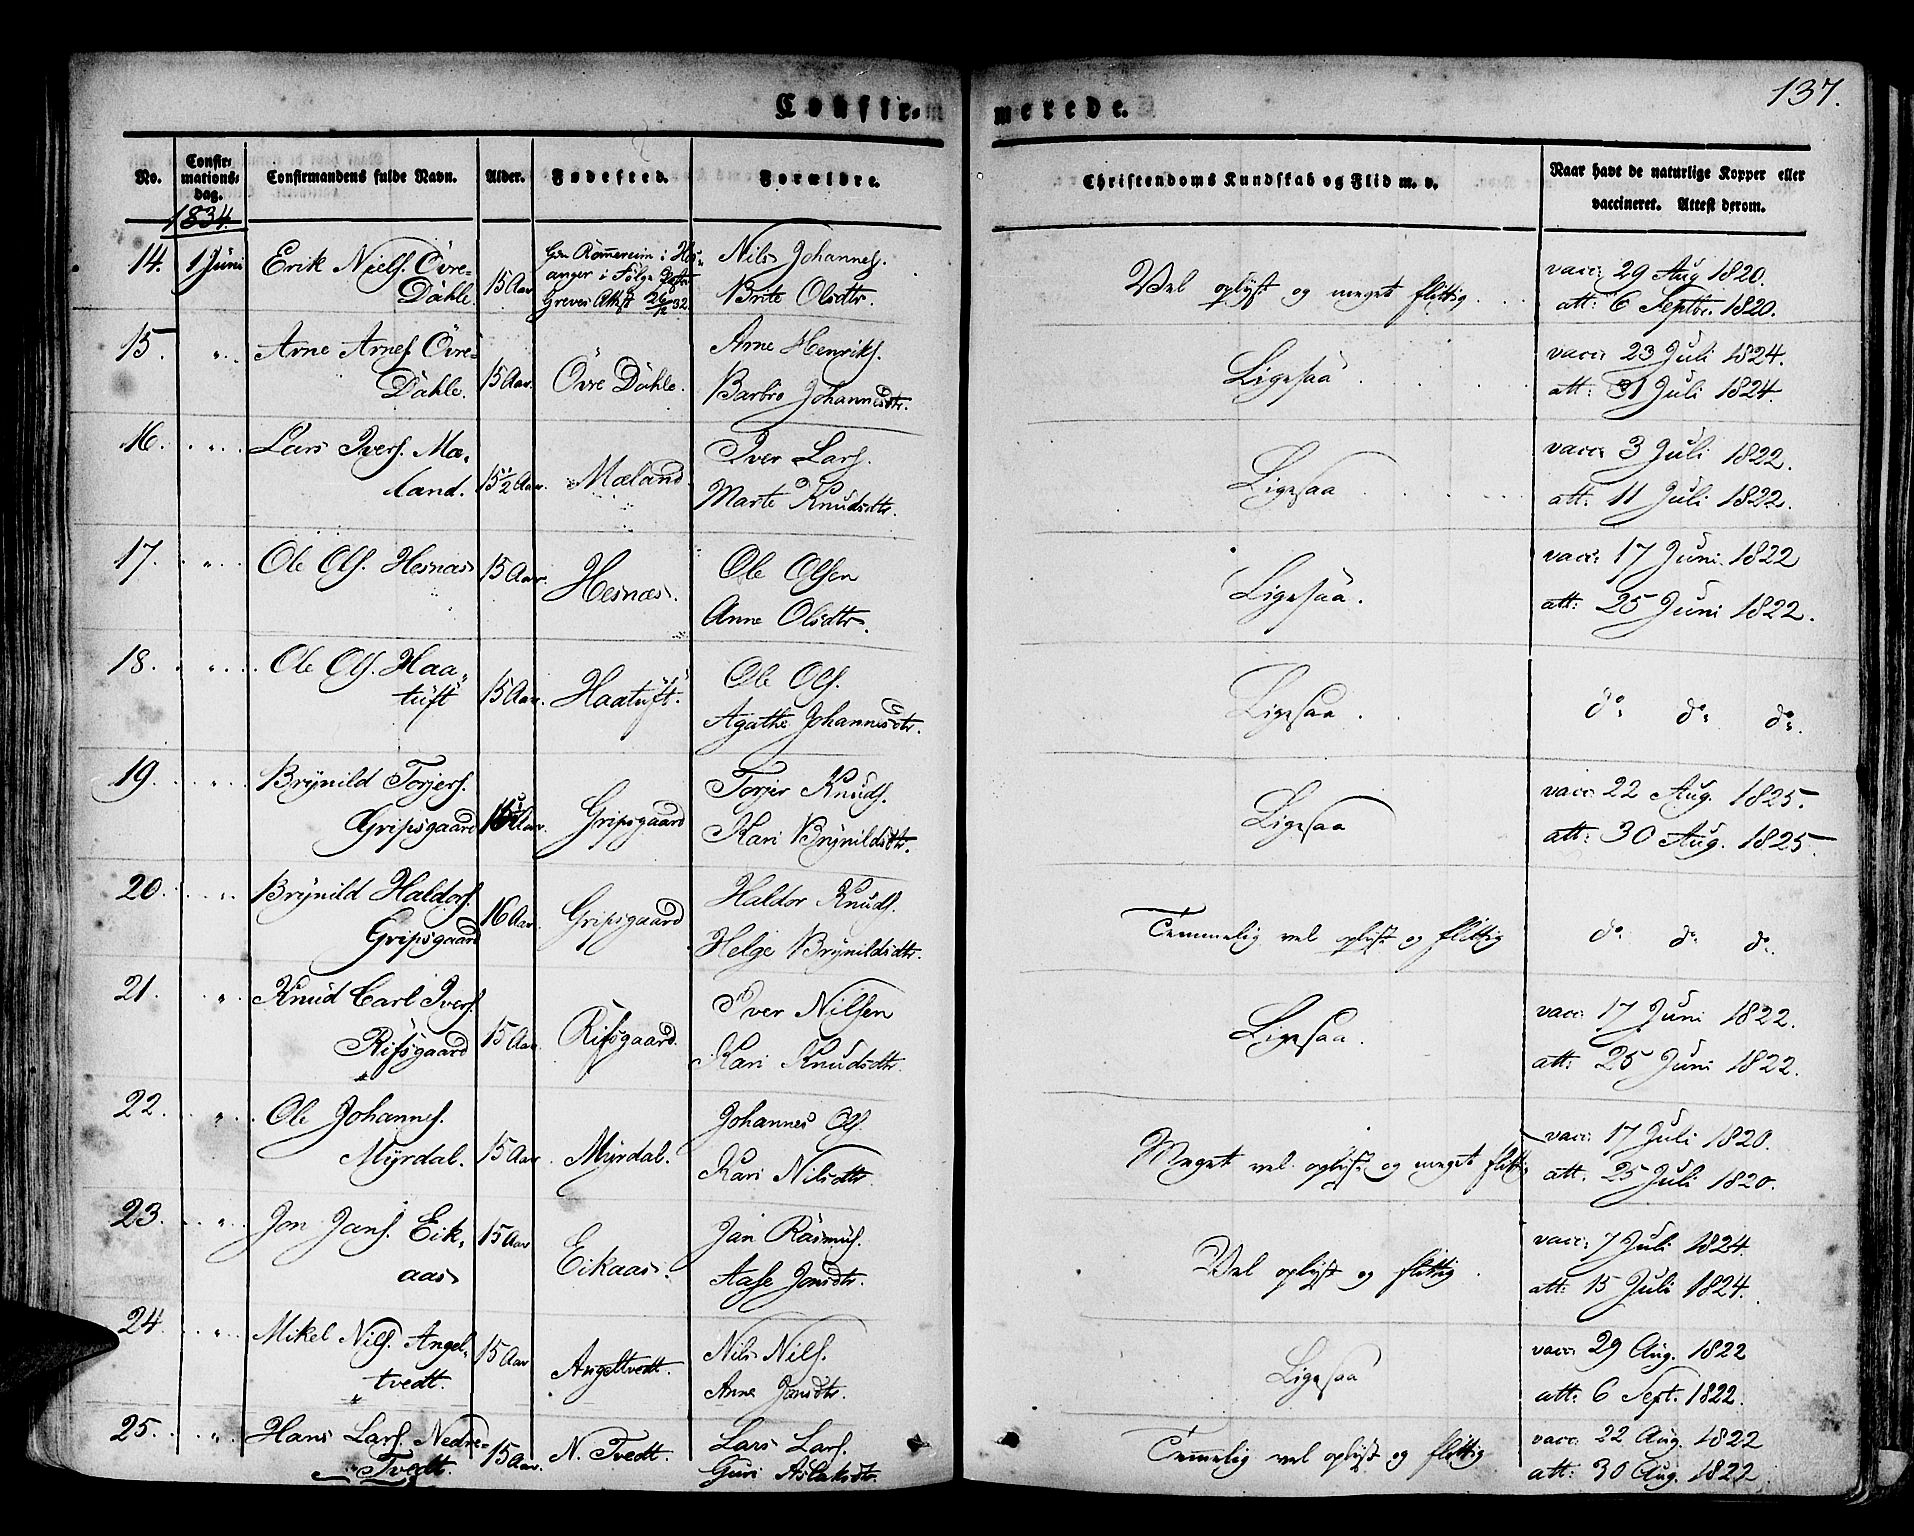 137.
Confir-merede.
No. Confir-mations-dag. Confirmandens fulde Navn. Alder. Fødested. Forældre. Christendoms Kundskab og Flid m. v. Naar havt de naturlige Kopper eller vaccineret. Attest derom.
1834.
14. 1 Juni Erik Niels. Övre- 15 Aar Rommereim i Hos- Nils Johannes. Vel oplÿst og meget flittig. vacc: 29 Aug 1820.
Dahle. anger i Følge Greves Attest 26/12 32. Brite Olsdtr. att: 6 Septbr. 1820.
15. " Arne Arnes. Övre- 15 Aar. Övre Dahle. Arne Henriks. Ligesaa vacc: 23 Juli 1824.
Dahle. Barbro Johannesdtr. att: 31 Juli 1824.
16. " Lars Ivers. Mæ- 15 1/2 Aar. Mæland. Iver Lars. Ligesaa vacc: 3 Juli 1822.
land. Marte Knudsdtr. att: 11 Juli 1822.
17. " Ole Ols. Hesnæs 15 Aar. Hesnæs. Ole Olsen Ligesaa. vacc: 17 Juni 1822
Anne Olsdtr. att: 25 Juni 1822.
18. " Ole Ols. Haa- 15 Aar. Haatuft. Ole Ols. Ligesaa. do do do.
tuft Agathe Johannesdtr.
19. " Brÿnild Torjers. 15 Aar. Gripsgaard Torjer Knuds. Ligesaa vacc: 22 Aug. 1825.
Gripsgaard Kari Brÿnildsdtr. att: 30 Aug. 1825.
20. " Brÿnild Haldors. 16 Aar. Gripsgaard Haldor Knuds. Temmelig vel oplyst og flittig do do do.
Gripsgaard Helge Brÿnildsdtr.
21. " Knud Carl Ivers. 15 Aar. Rifsgaard. Iver Nilsen Ligesaa. vacc: 17 Juni 1822.
Rifsgaard Kari Knudsdtr. att: 25 Juni 1822.
22. " Ole Johannes. 15 Aar. Mÿrdal. Johannes Ols. Meget vel oplyst og meget flittig vacc: 17 Juli 1820.
Mÿrdal. Kari Nilsdtr. att. 25 Juli 1820.
23. " Jon Jans. Eik- 15 Aar Eikaas. Jan Rasmus. Vel oplyst og flittig vacc: 7 Juli 1824.
aas Aase Jonsdtr. att: 15 Juli 1824.
24. " Mikel Nils. Angel- 15 Aar Angeltvedt. Nils Nils. Ligesaa vacc: 29 Aug. 1822
tvedt. Anne Jansdtr. att: 6 Sept. 1822.
25. " Hans Lars. Nedre- 15 Aar. N. Tvedt. Lars Lars. Temmelig vel oplyst og flittig vacc: 22 Aug. 1822
Tvedt. Guri Aslaksdtr. att: 30 Aug. 1822.